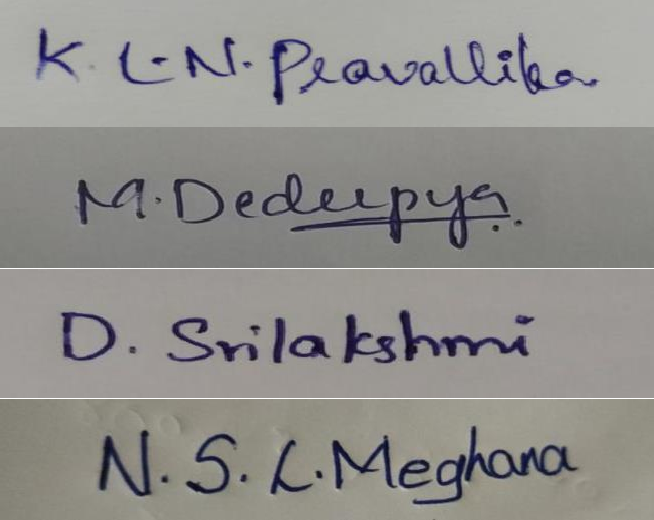 K. L.N. Pravallika
M. Dedeepya
D. Srilakshmi
N. S. L. Meghana